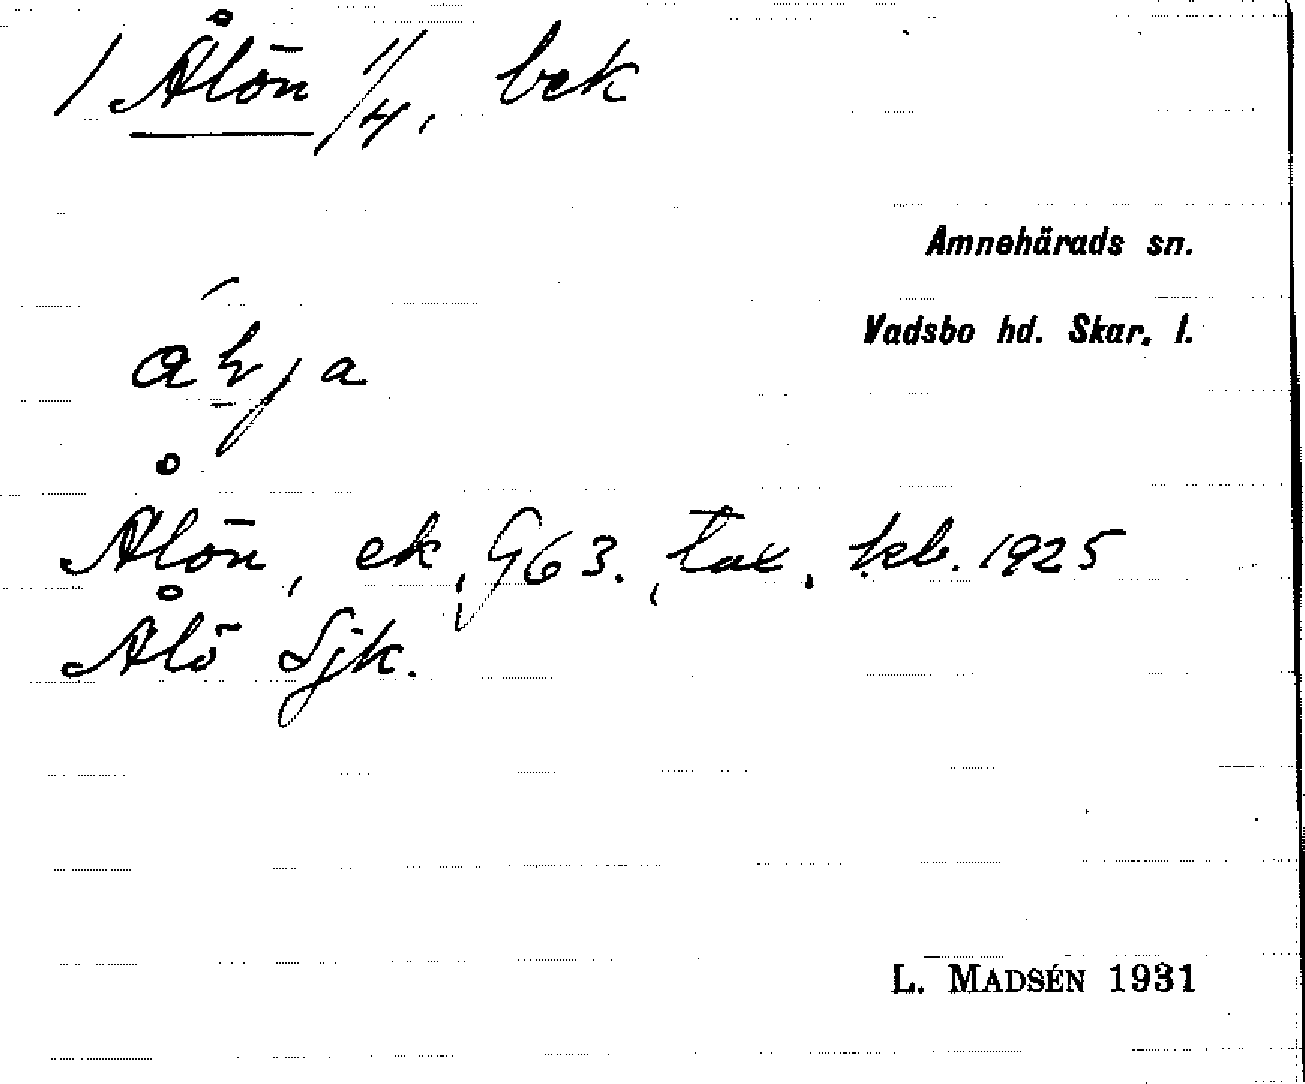 1 Ålön 1/4, bek
Amnehärads sn.
Vadsbo hd. Skar. l.
Ålön, ek, G63. tax. kb. 1925
Ålö Sjk.
L. MADSÉN 1931